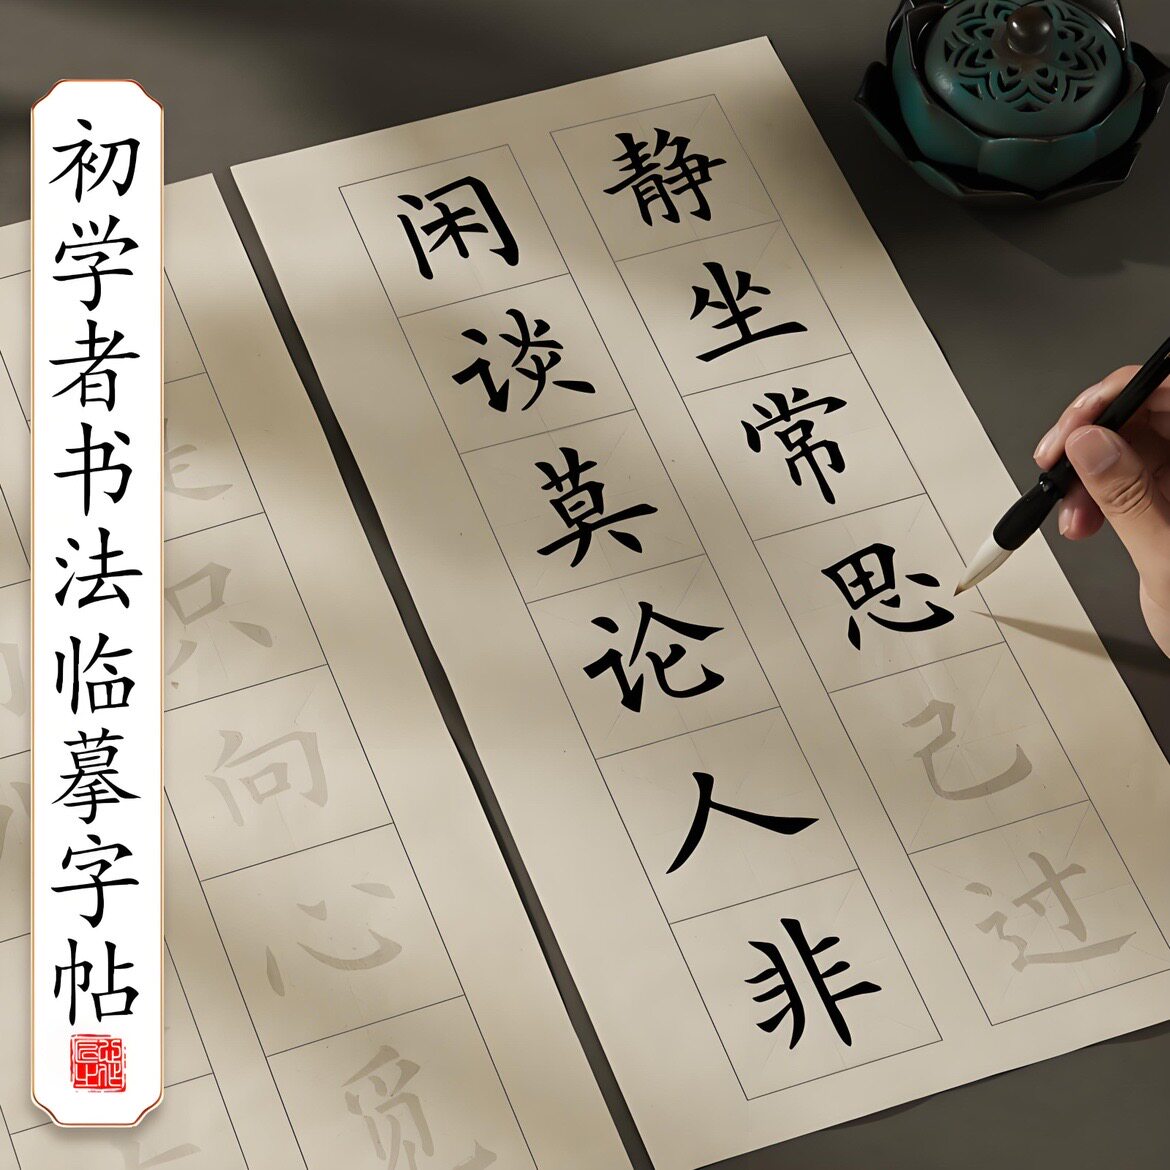 初学者书法临摹字帖
静坐常思己过
闲谈莫论人非
只向心觅